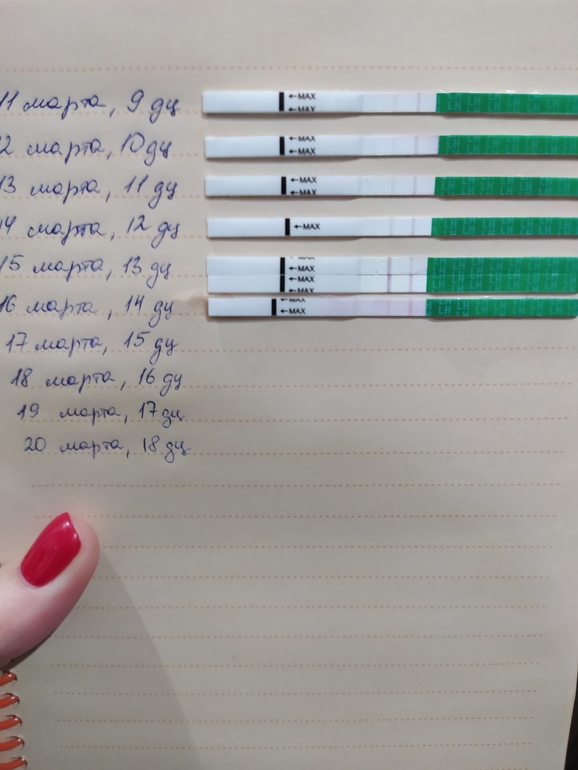 11 марта, 9 дц
←MAX
←MAX
12 марта, 10 дц
←MAX
←MAX
13 марта, 11 дц
←MAX
←MAX
14 марта, 12 дц
←MAX
15 марта, 13 дц
←MAX
←MAX
←MAX
←MAX
16 марта, 14 дц
←MAX
←MAX
17 марта, 15 дц
18 марта, 16 дц
19 марта, 17 дц
20 марта, 18 дц